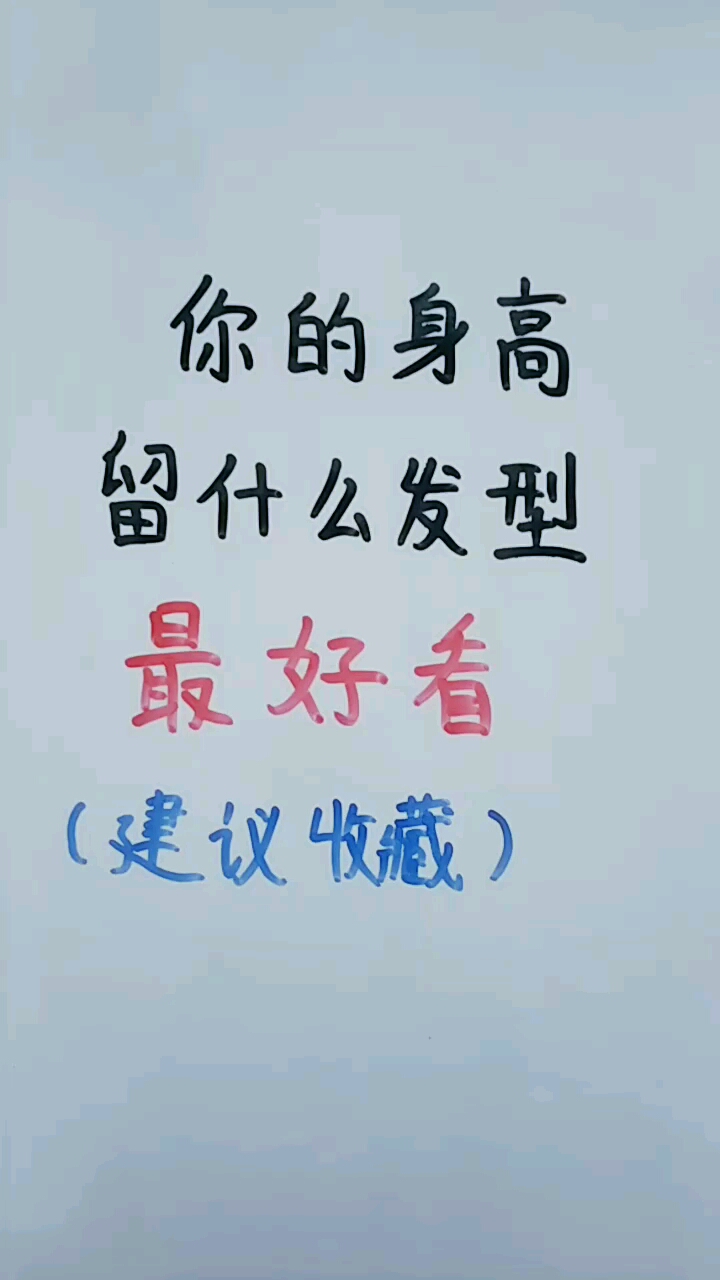 你的身高
留什么发型
最好看
（建议收藏）